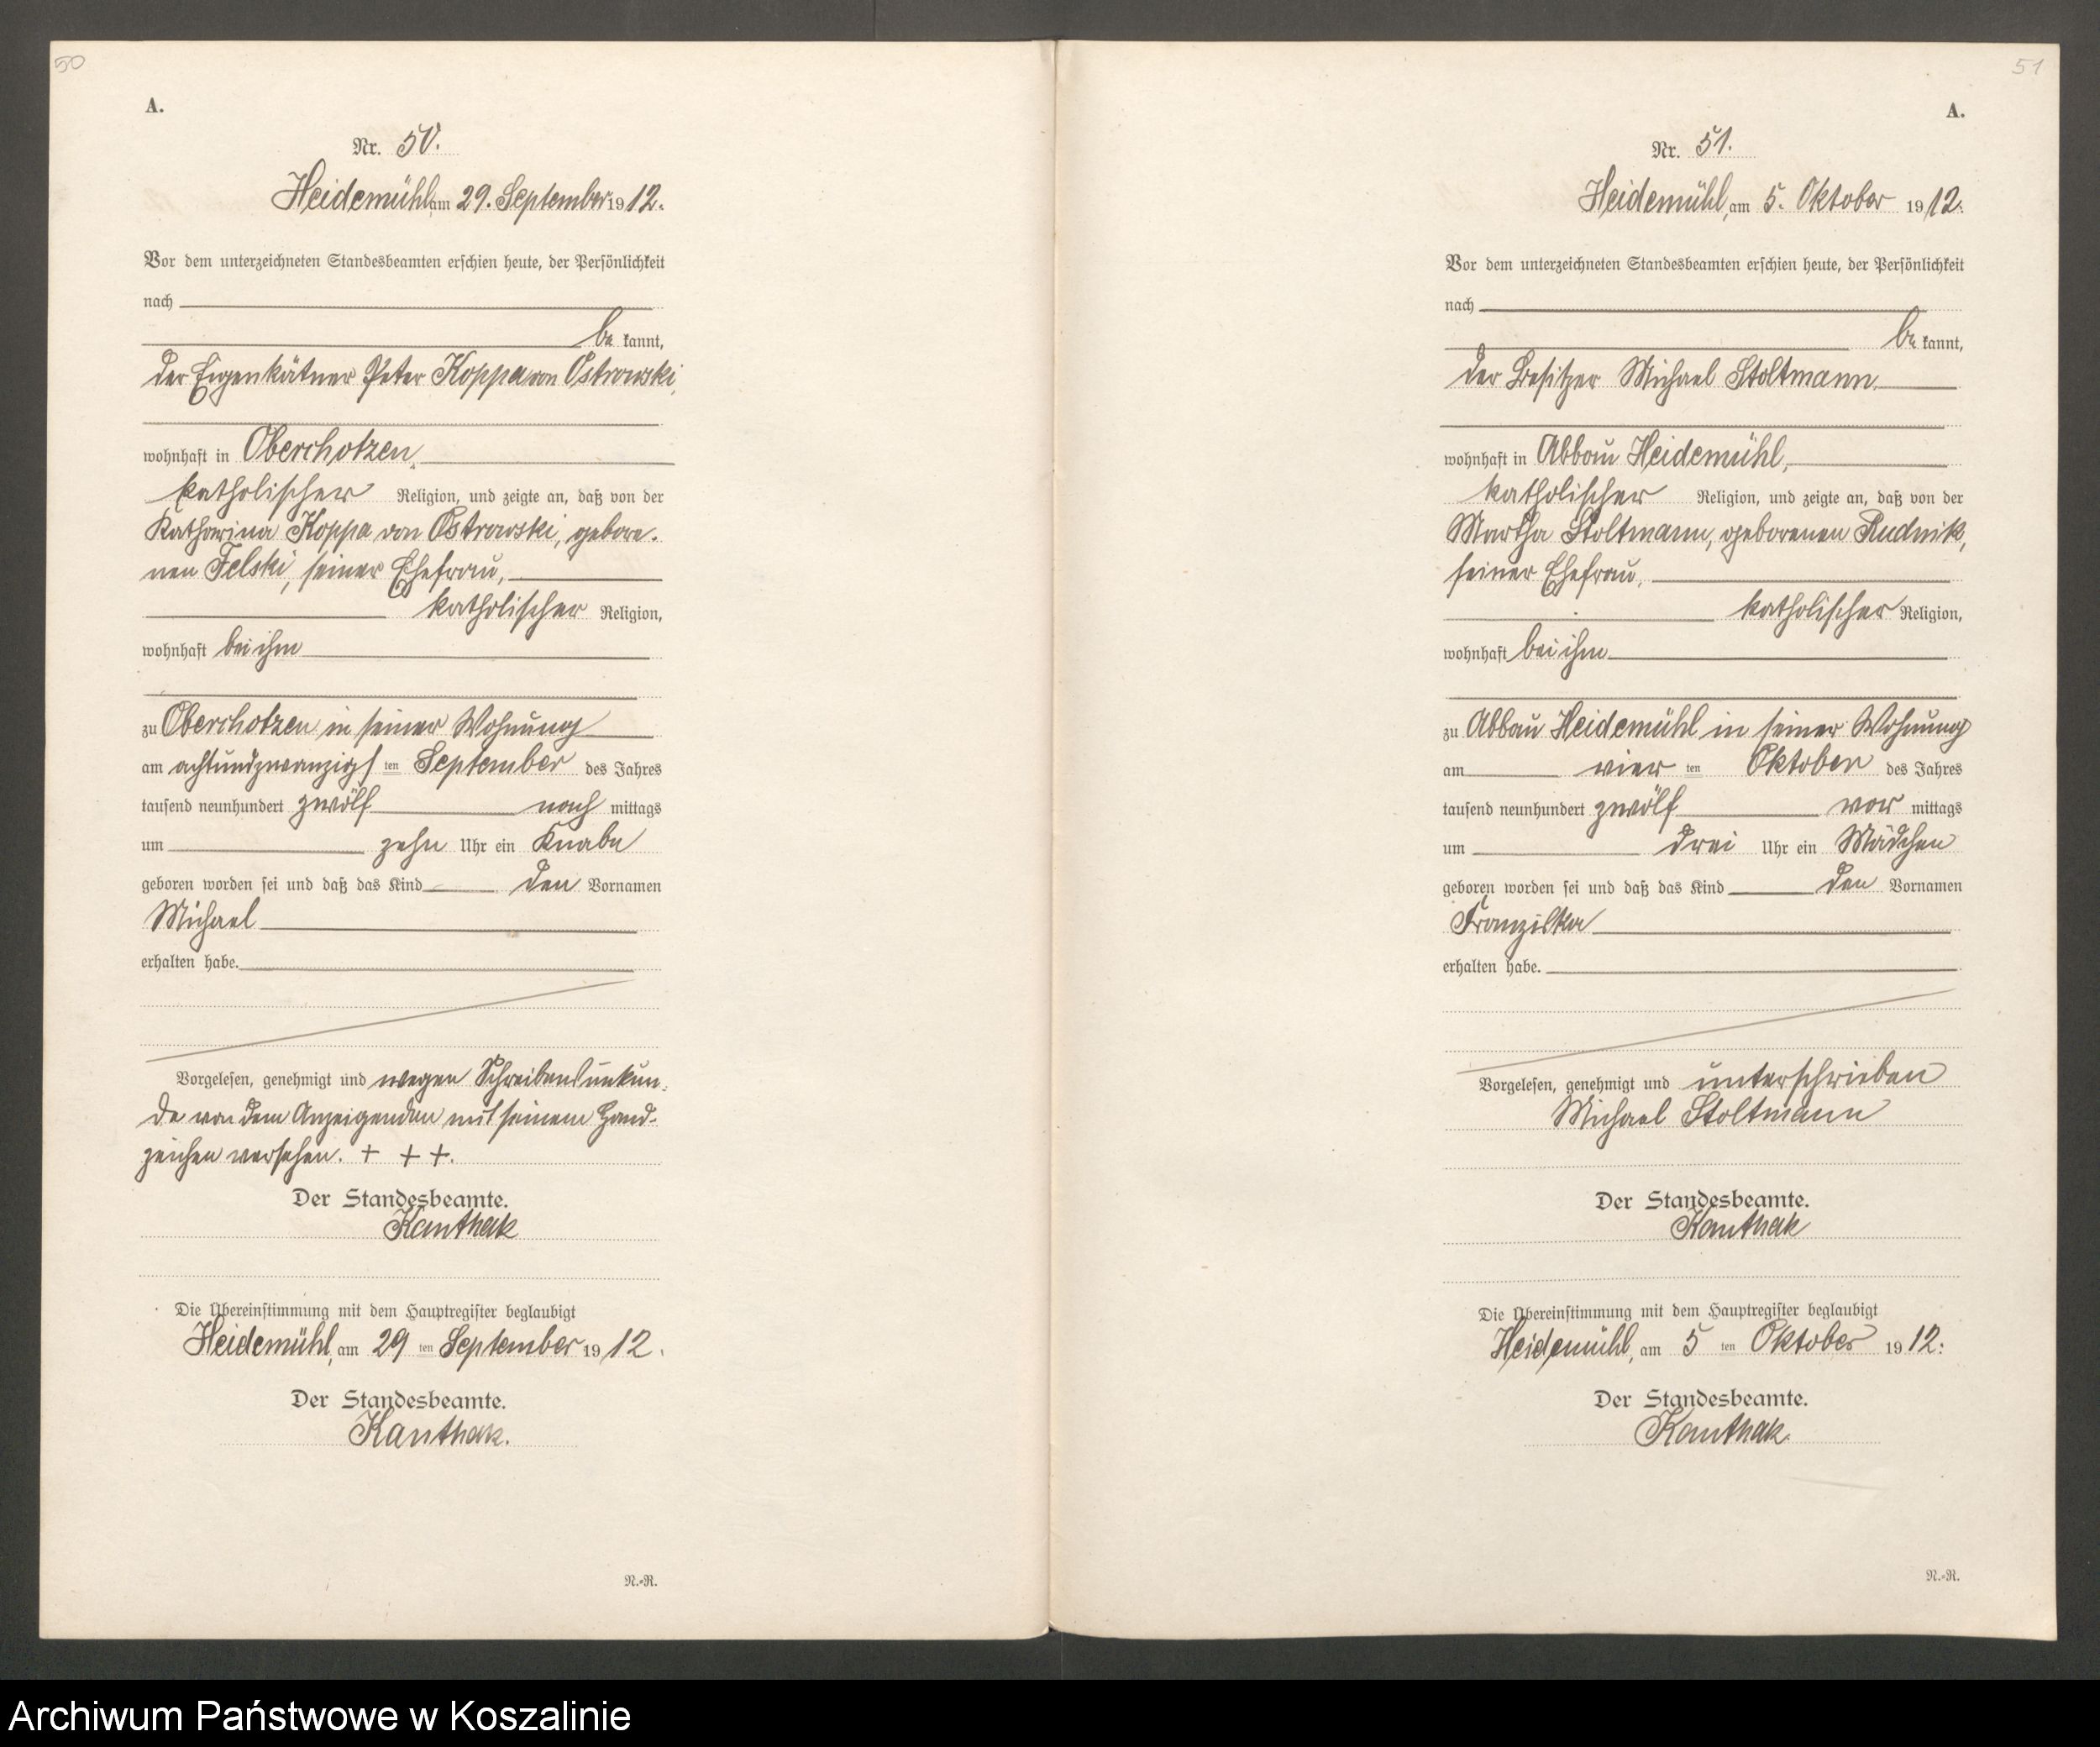 50
A.
Nr. 50.
Heidemühl, am 29. September 1912.
Vor dem unterzeichneten Standesbeamten erschien heute, der Persönlichkeit
nach
be kannt,
der Eigenkätner Peter Koppa von Ostrowski,
wohnhaft in Oberchotzen,
katholischer Religion, und zeigte an, daß von der
Katharina Koppa von Ostrowski, gebore-
nen Felski, seiner Ehefrau,
katholischer Religion,
wohnhaft bei ihm
zu Oberchotzen in seiner Wohnung
am achtundzwanzigs ten September des Jahres
tausend neunhundert zwölf nach mittags
um zehn Uhr ein Knabe
geboren worden sei und daß das Kind den Vornamen
Michael
erhalten habe.
Vorgelesen, genehmigt und wegen Schreibensunkun-
de von dem Anzeigenden mit seinem Hand-
zeichen versehen. + + +.
Der Standesbeamte.
Kanthak
Die Übereinstimmung mit dem Hauptregister beglaubigt
Heidemühl, am 29 ten September 1912.
Der Standesbeamte.
Kanthak.
N.=R.
51
A.
Nr. 51.
Heidemühl, am 5. Oktober 1912.
Vor dem unterzeichneten Standesbeamten erschien heute, der Persönlichkeit
nach
be kannt,
der Besitzer Michael Stoltmann
wohnhaft in Abbau Heidemühl,
katholischer Religion, und zeigte an, daß von der
Martha Stoltmann, geborenen Rudnik,
seiner Ehefrau,
katholischer Religion,
wohnhaft bei ihm
zu Abbau Heidemühl in seiner Wohnung
am vier ten Oktober des Jahres
tausend neunhundert zwölf vor mittags
um drei Uhr ein Mädchen
geboren worden sei und daß das Kind den Vornamen
Franziska
erhalten habe.
Vorgelesen, genehmigt und unterschrieben
Michael Stoltmann
Der Standesbeamte.
Kanthak
Die Übereinstimmung mit dem Hauptregister beglaubigt
Heidemühl, am 5 ten Oktober 1912.
Der Standesbeamte.
Kanthak.
N.=R.
Archiwum Państwowe w Koszalinie